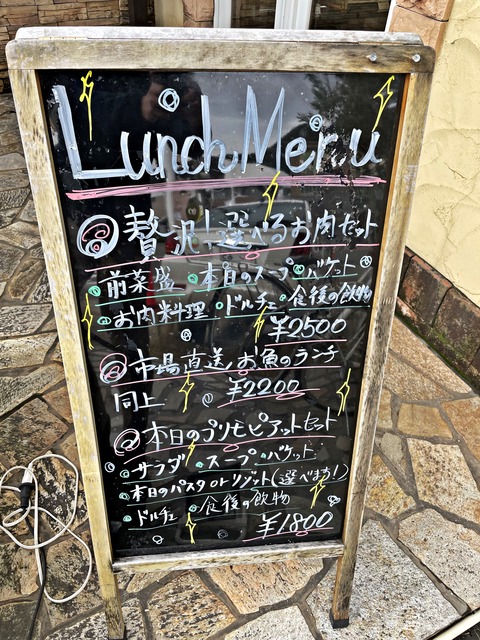 Lunch Menu
贅沢!選べるお肉セット
・前菜盛 ・本日のスープ ・バケット
・お肉料理 ・ドルチェ ・食後の飲物
¥2500
市場直送お魚のランチ
同上 ¥2200
本日のプリモピアットセット
・サラダ ・スープ ・バケット
・本日のパスタorリゾット(選べます!)
・ドルチェ ・食後の飲物
¥1800